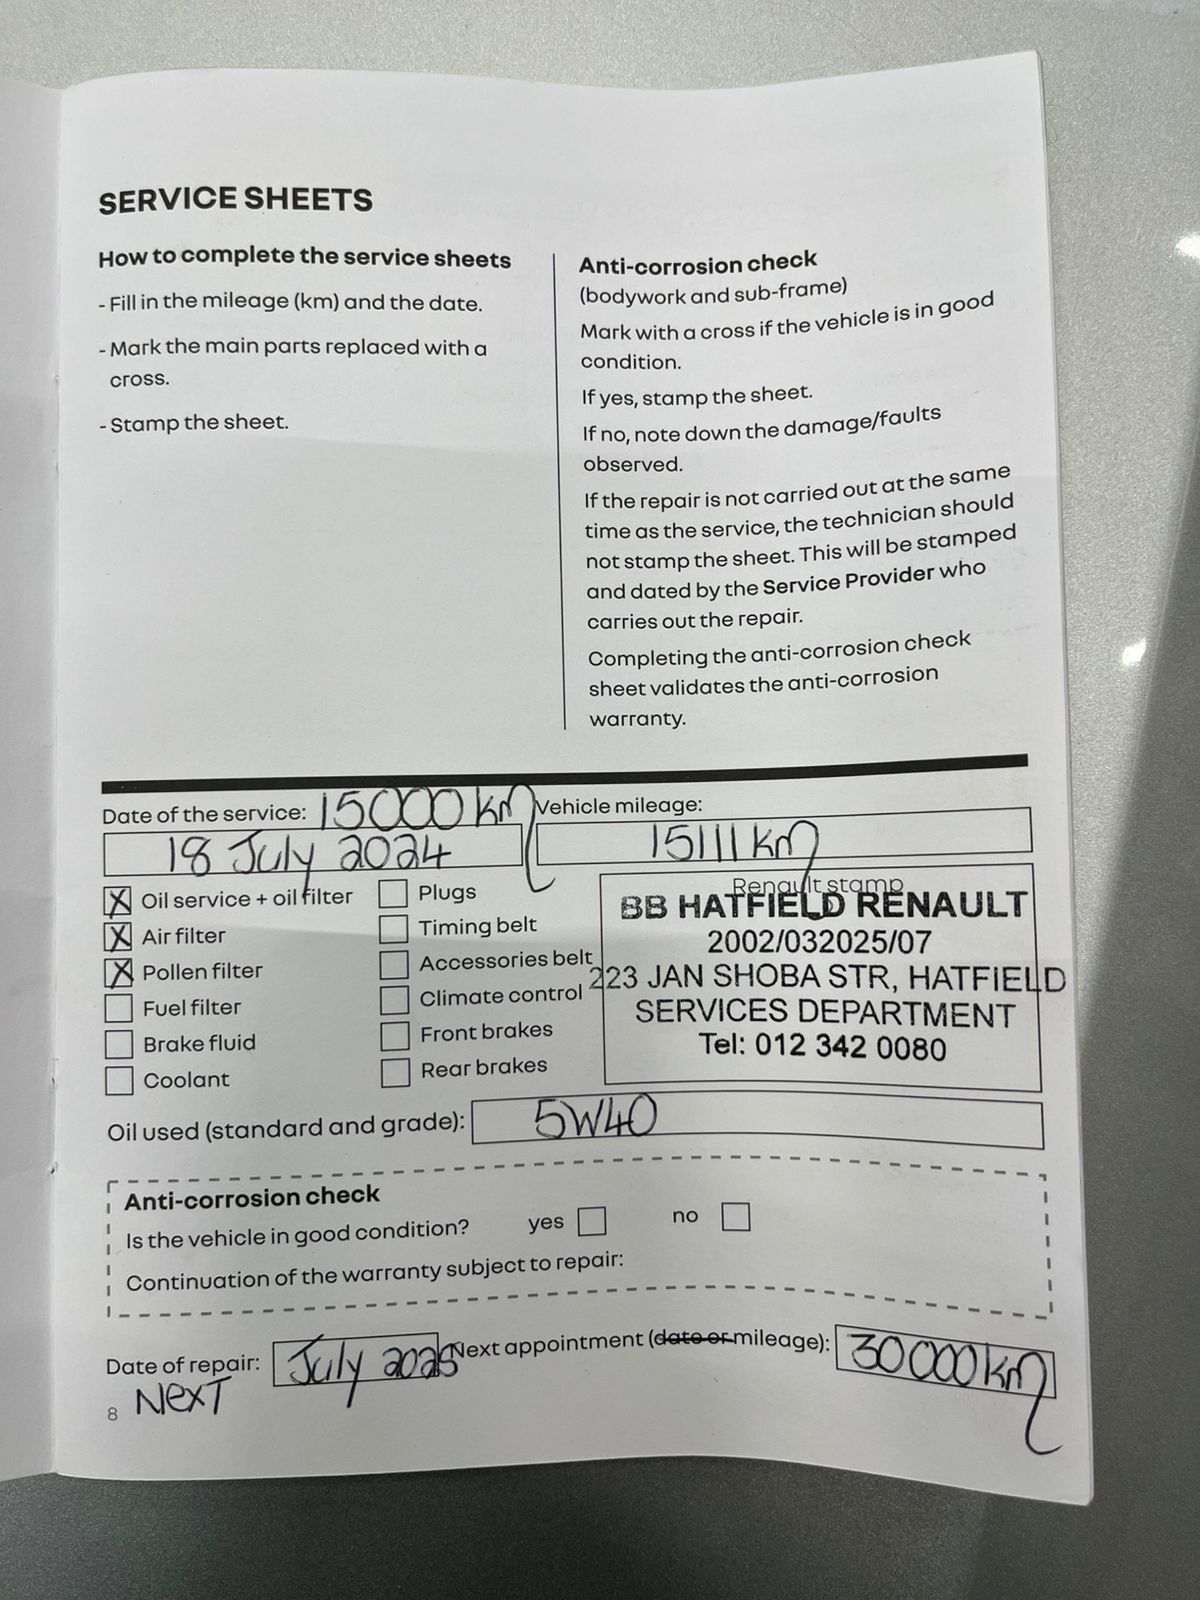 SERVICE SHEETS
How to complete the service sheets
- Fill in the mileage (km) and the date.
- Mark the main parts replaced with a
cross.
- Stamp the sheet.
Anti-corrosion check
(bodywork and sub-frame)
Mark with a cross if the vehicle is in good
condition.
If yes, stamp the sheet.
If no, note down the damage/faults
observed.
If the repair is not carried out at the same
time as the service, the technician should
not stamp the sheet. This will be stamped
and dated by the Service Provider who
carries out the repair.
Completing the anti-corrosion check
sheet validates the anti-corrosion
warranty.
Date of the service: 15000 km
18 July 2024
Vehicle mileage:
15111 km
X Oil service + oil filter
X Air filter
X Pollen filter
Fuel filter
Brake fluid
Coolant
Plugs
Timing belt
Accessories belt
Climate control
Front brakes
Rear brakes
Renault stamp
BB HATFIELD RENAULT
2002/032025/07
223 JAN SHOBA STR, HATFIELD
SERVICES DEPARTMENT
Tel: 012 342 0080
Oil used (standard and grade): 5W40
Anti-corrosion check
Is the vehicle in good condition? yes no
Continuation of the warranty subject to repair:
Date of repair: July 2025 Next appointment (date or mileage): 30000 km
NexT
8